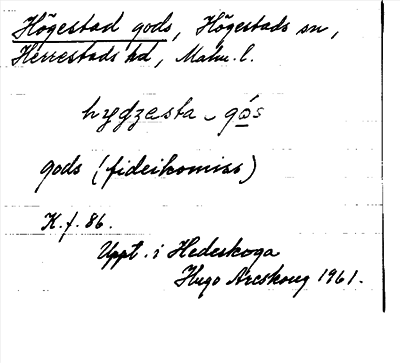 Högestad gods, Högestads sn,
Herrestads hd, Malm. l.
hygzesta - gós
gods (fideikomiss)
K. f. 86.
Uppt. i Hedeskoga
Hugo Areskoug 1961.